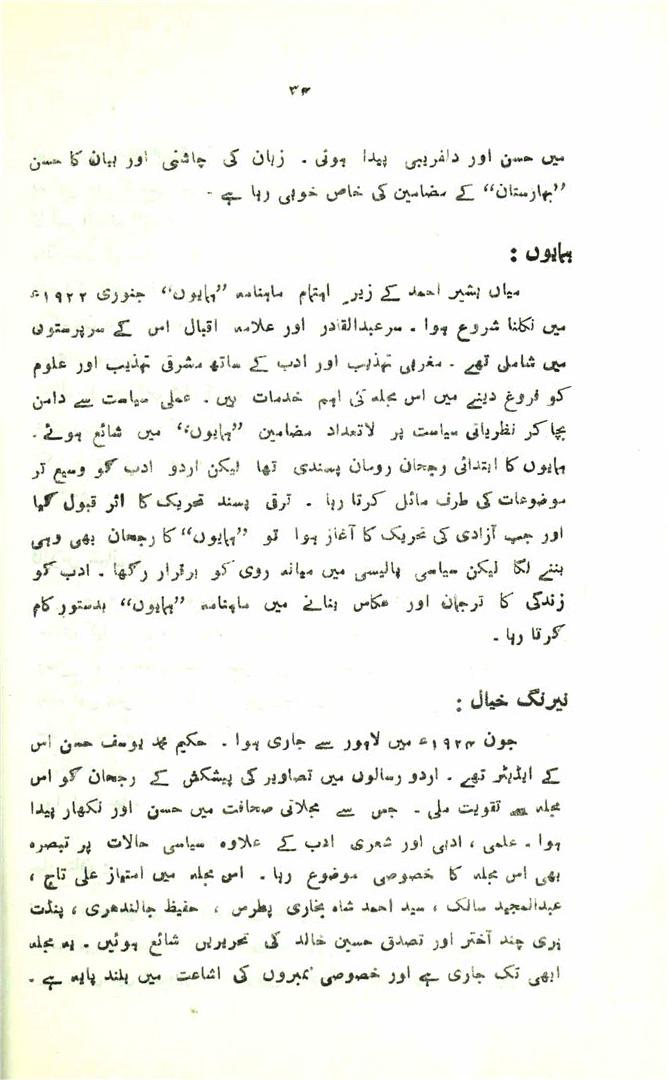 ۳۴
میں حسن اور دلفریبی پیدا ہوئی ۔ زبان کی چاشنی اور بیان کا حسن
”بہارستان“ کے مضامین کی خاص خوبی رہا ہے ۔
ہمایوں :
میاں بشیر احمد کے زیر اہتمام ماہنامہ ”ہمایوں“ جنوری ۱۹۲۲ء
میں نکلنا شروع ہوا ۔ سر عبدالقادر اور علامہ اقبال اس کے سرپرستوں
میں شامل تھے ۔ مغربی تہذیب اور ادب کے ساتھ مشرقی تہذیب اور علوم
کو فروغ دینے میں اس مجلہ کی اہم خدمات ہیں ۔ عملی سیاست سے دامن
بچا کر نظریاتی سیاست پر لاتعداد مضامین ”ہمایوں“ میں شائع ہوئے ۔
ہمایوں کا ابتدائی رجحان رومان پسندی تھا لیکن اردو ادب کو وسیع تر
موضوعات کی طرف مائل کرتا رہا ۔ ترقی پسند تحریک کا اثر قبول کیا
اور جب آزادی کی تحریک کا آغاز ہوا تو ”ہمایوں“ کا رجحان بھی وہی
بننے لگا لیکن سیاسی پالیسی میں میانہ روی کو برقرار رکھا ۔ ادب کو
زندگی کا ترجمان اور عکاس بنانے میں ماہنامہ ”ہمایوں“ بدستور کام
کرتا رہا ۔
نیرنگ خیال :
جون ۱۹۲۴ء میں لاہور سے جاری ہوا ۔ حکیم محمد یوسف حسن اس
کے ایڈیٹر تھے ۔ اردو رسالوں میں تصاویر کی پیشکش کے رجحان کو اس
مجلہ سے تقویت ملی ۔ جس سے مجلاتی صحافت میں حسن اور نکھار پیدا
ہوا ۔ علمی ، ادبی اور شعری ادب کے علاوہ سیاسی حالات پر تبصرہ
بھی اس مجلہ کا خصوصی موضوع رہا ۔ اس مجلہ میں امتیاز علی تاج ،
عبدالمجید سالک ، سید احمد شاہ بخاری پطرس ، حفیظ جالندھری ، پنڈت
ہری چند اختر اور تصدق حسین خالد کی تحریریں شائع ہوئیں ۔ یہ مجلہ
ابھی تک جاری ہے اور خصوصی نمبروں کی اشاعت میں بلند پایہ ہے ۔